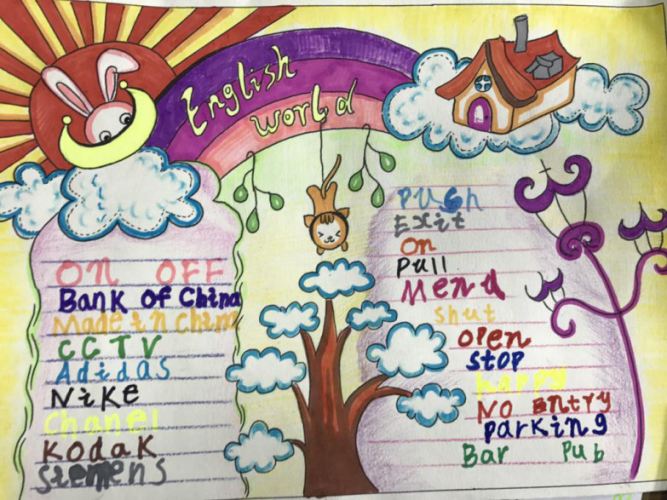 English
world
ON OFF
Bank of China
Made in China
CCTV
Adidas
NiKE
Chanel
KodaK
Siemens
PUSh
Exit
on
pull
Menu
shut
open
stop
happy
No Entry
parking
Bar Pub